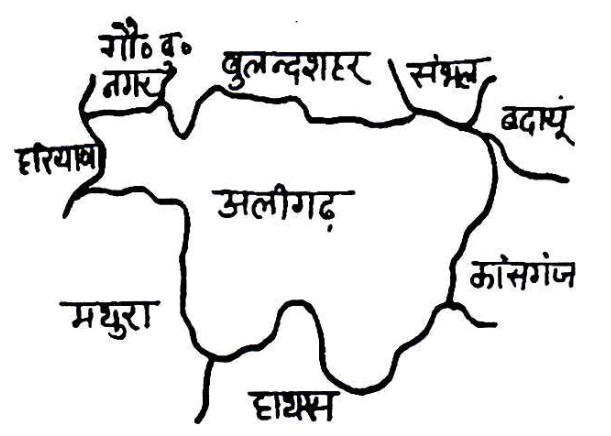 गौ० बु०
नगर
बुलन्दशहर
संभल
बदायूं
हरियाणा
अलीगढ़
कांसगंज
मथुरा
हाथरस